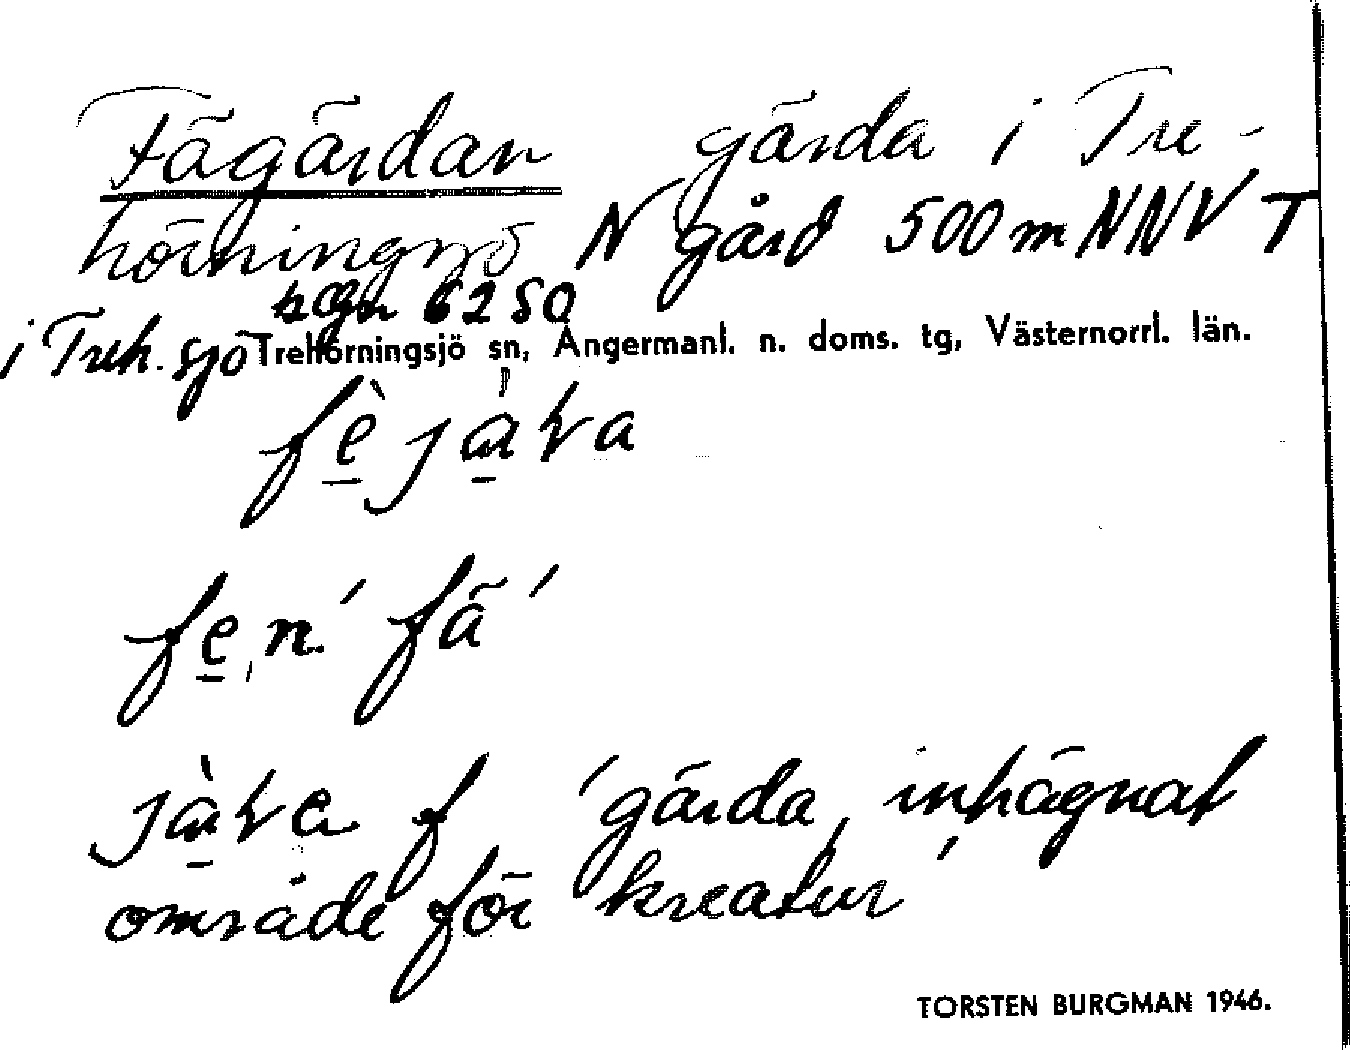 Fägärdan gärda i Tre-
hörningsjö N gård 500 m NNV T
sgn 6250
i Treh. sjö Trehörningsjö sn, Ångermanl. n. doms. tg, Västernorrl. län.
fè jàṛva
fe n. ´fä´
jàṛva f ´gärda, inhägnat
område för kreatur´
TORSTEN BURGMAN 1946.